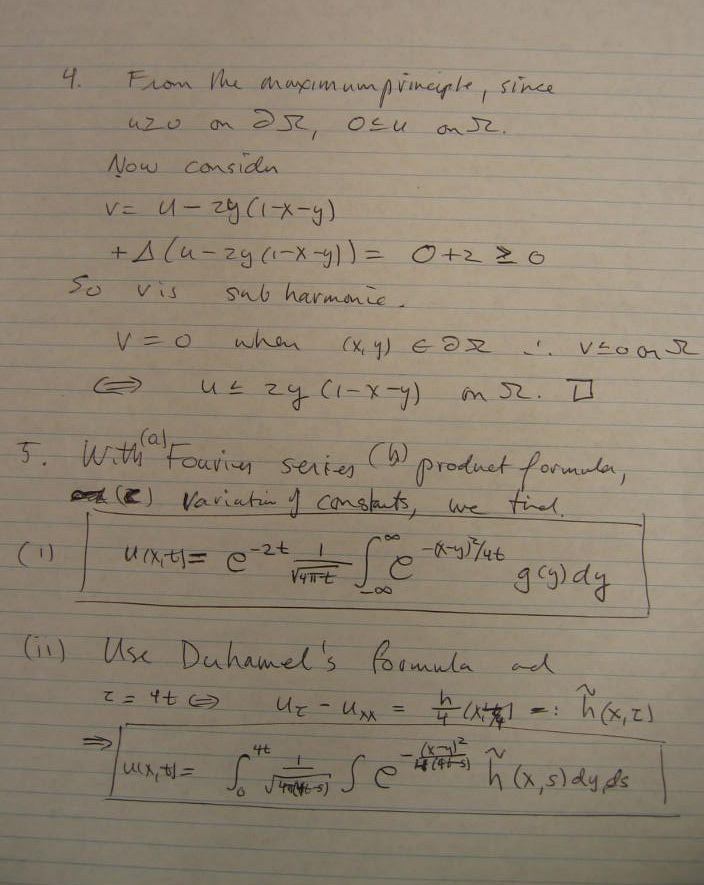 4. From the maximum principle, since
u≥0 on ∂Ω, 0≤u on Ω.
Now consider
v = u - 2y(1-x-y)
+Δ(u-2y(1-x-y)) = 0+2 ≥ 0
So v is subharmonic.
v = 0 when (x,y) ∈ ∂Ω ∴ v≤0 on Ω
⟺ u ≤ 2y(1-x-y) on Ω. □
5. With (a) Fourier series (b) product formula,
(c) variation of constants, we find.
(i) u(x,t) = e^{-2t} 1/√(4πt) ∫_{-∞}^{∞} e^{-(x-y)²/4t} g(y)dy
(ii) Use Duhamel's formula ad
τ = 4t ⟺ u_τ - u_xx = h/4 (x, τ/4) =: h̃(x,τ)
⇒ u(x,t) = ∫_0^{4t} 1/√(4π(4t-s)) ∫ e^{-(x-y)²/4(4t-s)} h̃(x,s)dy,ds